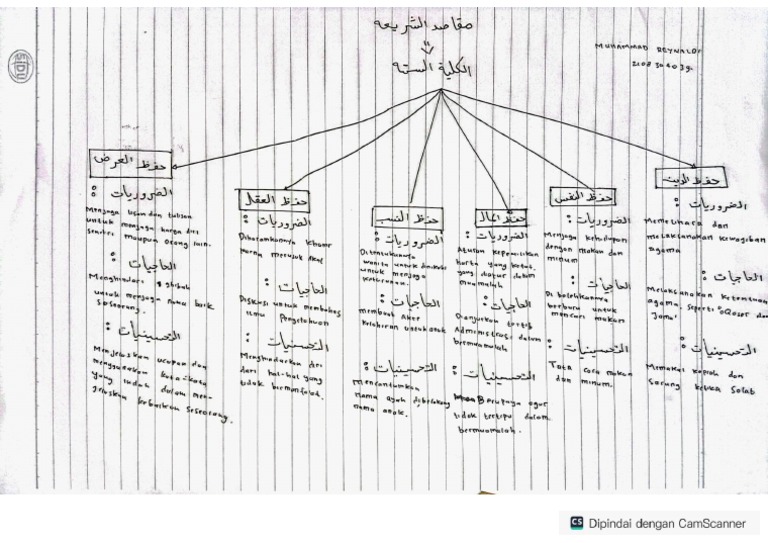 مقاصد الشريعه
الكلية الستة
MUHAMMAD REYNALDI
SIDU
حفظ العرض
الضروريات :
Menjaga lisan dan tulisan
untuk menjaga harga diri
sendiri maupun orang lain.
الحاجيات :
Menghindari ghibah
untuk menjaga nama baik
seseorang.
التحسينيات :
Menjelaskan ucapan dan
menggunakan kata-kata
yang indah dalam men-
jelaskan keburukan seseorang.
حفظ العقل
الضروريات :
Diharamkannya khamr
karna merusak akal
الحاجيات :
Diskusi untuk membahas
ilmu Pengetahuan
التحسنيات :
Menghindarkan diri
dari hal-hal yang
tidak bermanfaat.
حفظ النسب
الضروريات :
wanita untuk
untuk menjaga
keturunan.
الحاجيات :
membuat Akte
kelahiran untuk anak
التحسينيات :
Mencantumkan
nama ayah dibelakang
nama anak.
حفظ المال
الضروريات :
Aturan kepemilikan
harta yang
yang diatur dalam
muamalah
الحاجيات :
Dianjurkan tertib
Administrasi dalam
bermuamalah
التحسينيات :
agar
tidak tertipu dalam
bermuamalah.
حفظ النفس
الضروريات :
Menjaga kehidupan
dengan makan dan
minum
الحاجيات :
Di bolehkannya
berburu untuk
mencari makan
التحسينيات :
Tata cara makan
dan minum.
حفظ الدين
الضروريات :
Memelihara dan
melaksanakan kewajiban
agama
الحاجيات :
Melaksanakan ketentuan
agama. seperti "Qasar dan
Jama'
التحسينيات :
Memakai kopiah dan
sarung ketika Solat
CS Dipindai dengan CamScanner